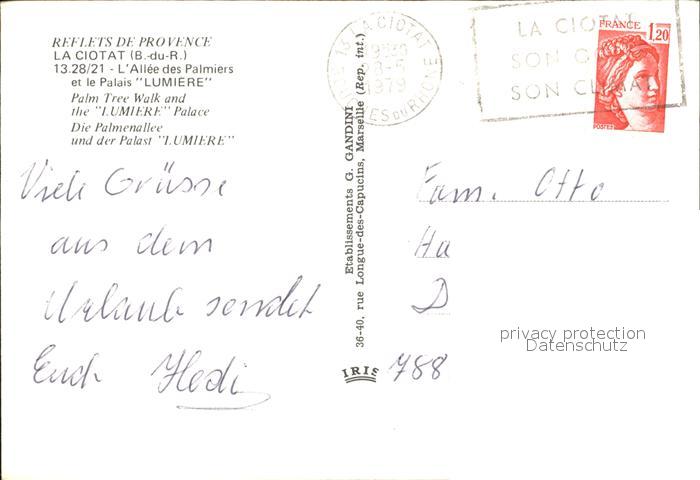 REFLETS DE PROVENCE
LA CIOTAT (B.-du-R.)
13.28/21 - L'Allée des Palmiers
et le Palais "LUMIERE"
Palm Tree Walk and
the "LUMIERE" Palace
Die Palmenallee
und der Palast "LUMIERE"
Viele Grüsse
aus dem
Urlaub sendet
Euch Hedi
Etablissements G. GANDINI
36-40, rue Longue-des-Capucins, Marseille (Rep. int.)
IRIS
13 LA CIOTAT
1979
DU RHONE
LA CIOTAT
SON
SON CLIMAT
FRANCE
1,20
POSTES
Fam. Otto
Ha
D
788
privacy protection
Datenschutz